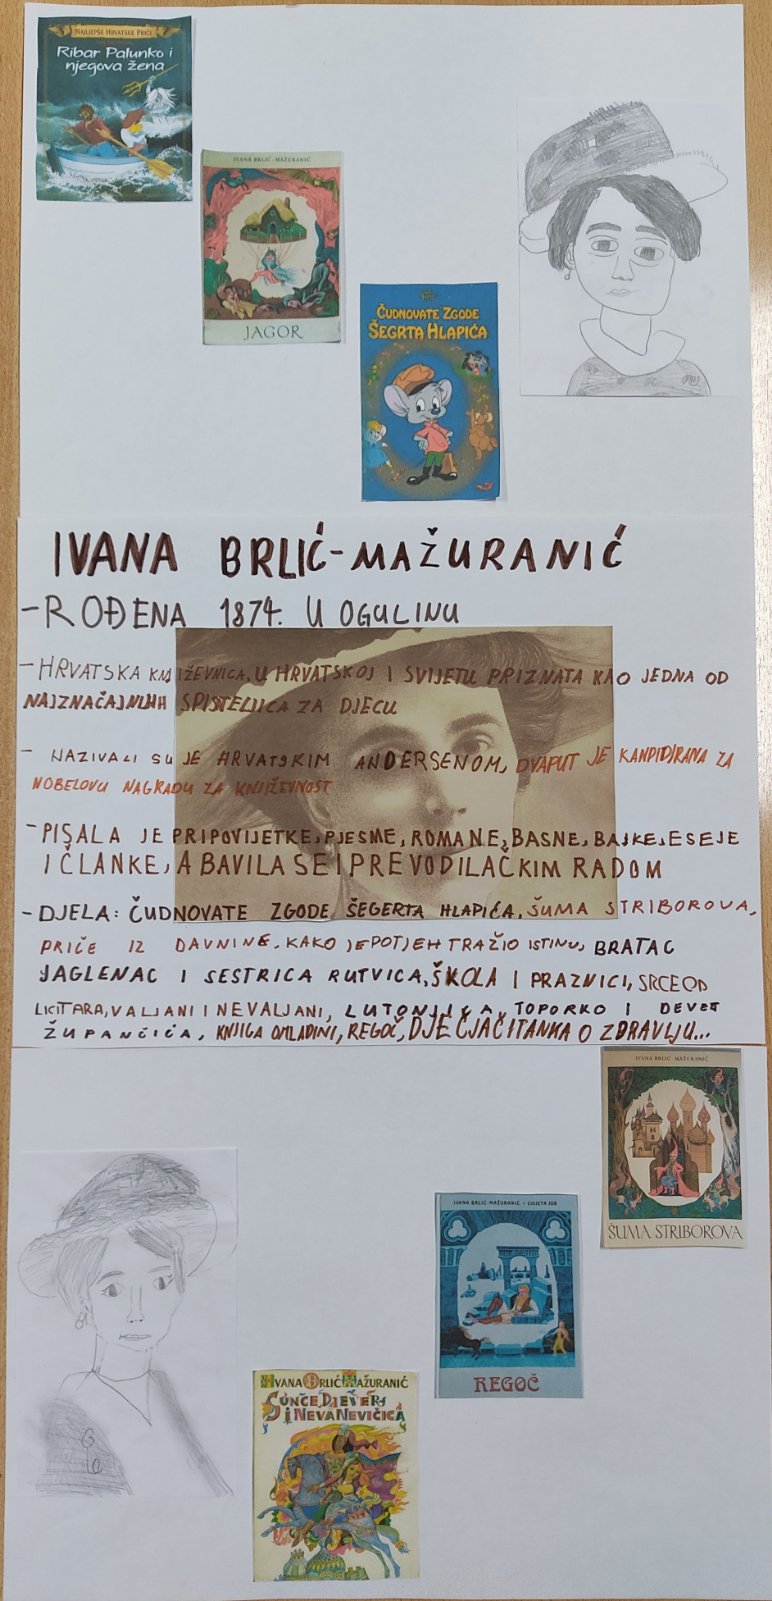 NAJLJEPŠE HRVATSKE PRIČE
Ribar Palunko i
njegova žena
IVANA BRLIĆ-MAŽURANIĆ
JAGOR
ČUDNOVATE ZGODE
ŠEGRTA HLAPIĆA
IVANA BRLIĆ-MAŽURANIĆ
-ROĐENA 1874. U OGULINU
-HRVATSKA KNJIŽEVNICA, U HRVATSKOJ I SVIJETU PRIZNATA KAO JEDNA OD
NAJZNAČAJNIJIH SPISTELJICA ZA DJECU
- NAZIVALI SU JE HRVATSKIM ANDERSENOM, DVAPUT JE KANDIDIRANA ZA
NOBELOVU NAGRADU ZA KNJIŽEVNOST
-PISALA JE PRIPOVIJETKE, PJESME, ROMANE, BASNE, BAJKE, ESEJE
I ČLANKE, A BAVILA SE I PREVODILAČKIM RADOM
-DJELA: ČUDNOVATE ZGODE ŠEGERTA HLAPIĆA, ŠUMA STRIBOROVA,
PRIČE IZ DAVNINE, KAKO JE POTJEH TRAŽIO ISTINU, BRATAC
JAGLENAC I SESTRICA RUTVICA, ŠKOLA I PRAZNICI, SRCE OD
LICITARA, VALJANI I NEVALJANI, LUTONJICA, TOPORKO I DEVET
ŽUPANČIĆA, KNJIGA OMLADINI, REGOČ, DJEČJA ČITANKA O ZDRAVLJU...
IVANA BRLIĆ-MAŽURANIĆ
ŠUMA STRIBOROVA
IVANA BRLIĆ-MAŽURANIĆ • CVIJETA JOB
REGOČ
IVANA BRLIĆ MAŽURANIĆ
SUNCE DJEVER
I NEVA NEVIČICA